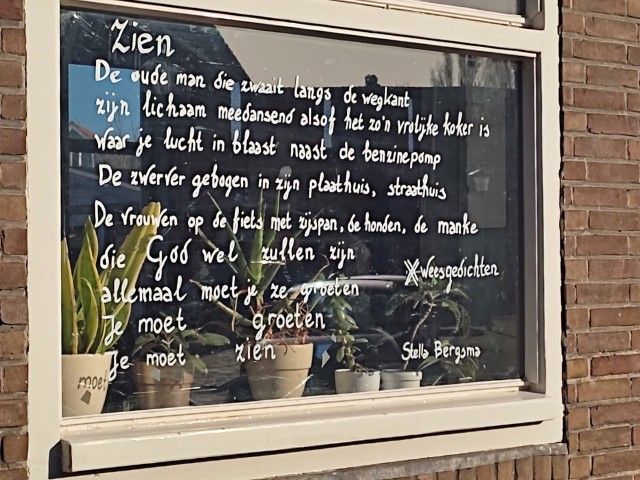 Zien
De oude man die zwaait langs de wegkant
zijn lichaam meedansend alsof het zo'n vrolijke koker is
waar je lucht in blaast naast de benzinepomp
De zwerver gebogen in zijn plaathuis, straathuis
De vrouwen op de fiets met zijspan, de honden, de manke
die God wel zullen zijn
allemaal moet je ze groeten
Je moet groeten
Je moet zien
weesgedichten
Stella Bergsma
moet